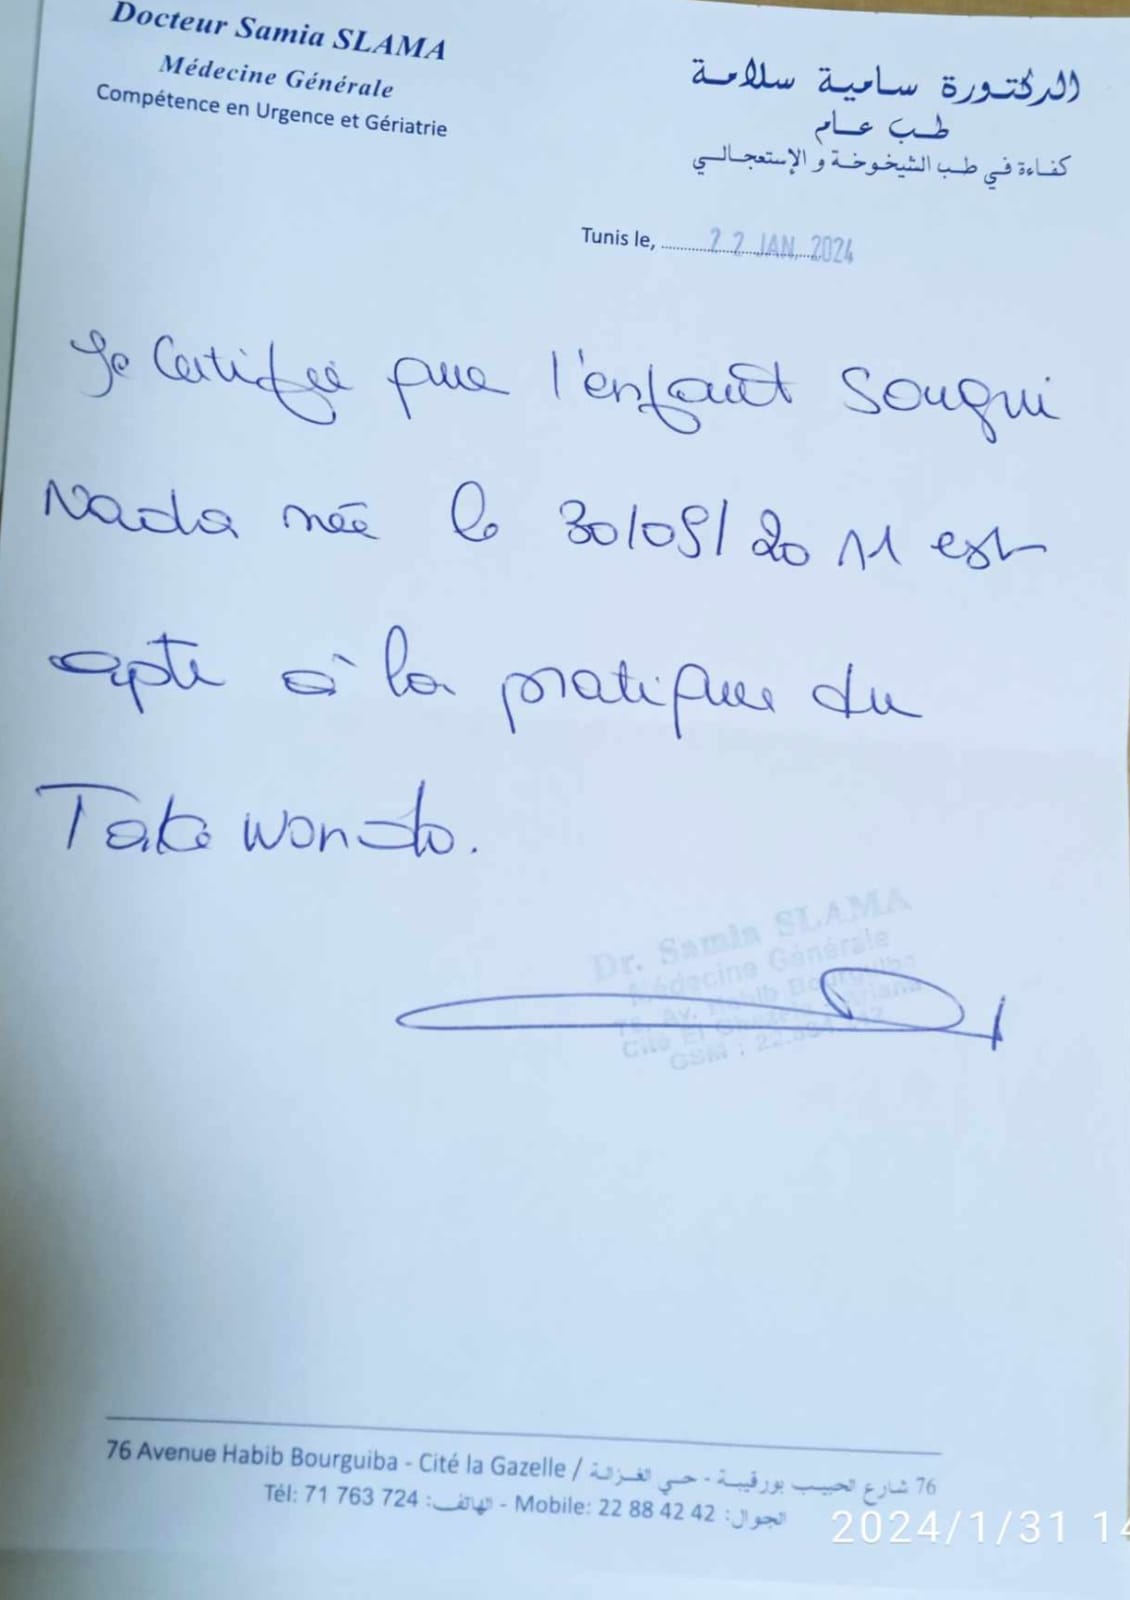 Docteur Samia SLAMA
Médecine Générale
Compétence en Urgence et Gériatrie
الدكتورة سامية سلامة
طب عام
كفاءة في طب الشيخوخة و الإستعجالي
Tunis le, 22 JAN. 2024
Je Certifie que l'enfant Sougui
Nada née le 30/09/2011 est
apte à la pratique du
Takewondo.
Dr. Samia SLAMA
Médecine Générale
76, Av. Habib Bourguiba
Cité El Ghazela Ariana
GSM : 22.884.242
76 Avenue Habib Bourguiba - Cité la Gazelle / 76 شارع الحبيب بورقيبة - حي الغزالة
Tél: 71 763 724 :الهاتف - Mobile: 22 88 42 42 :الجوال
2024/1/31 14